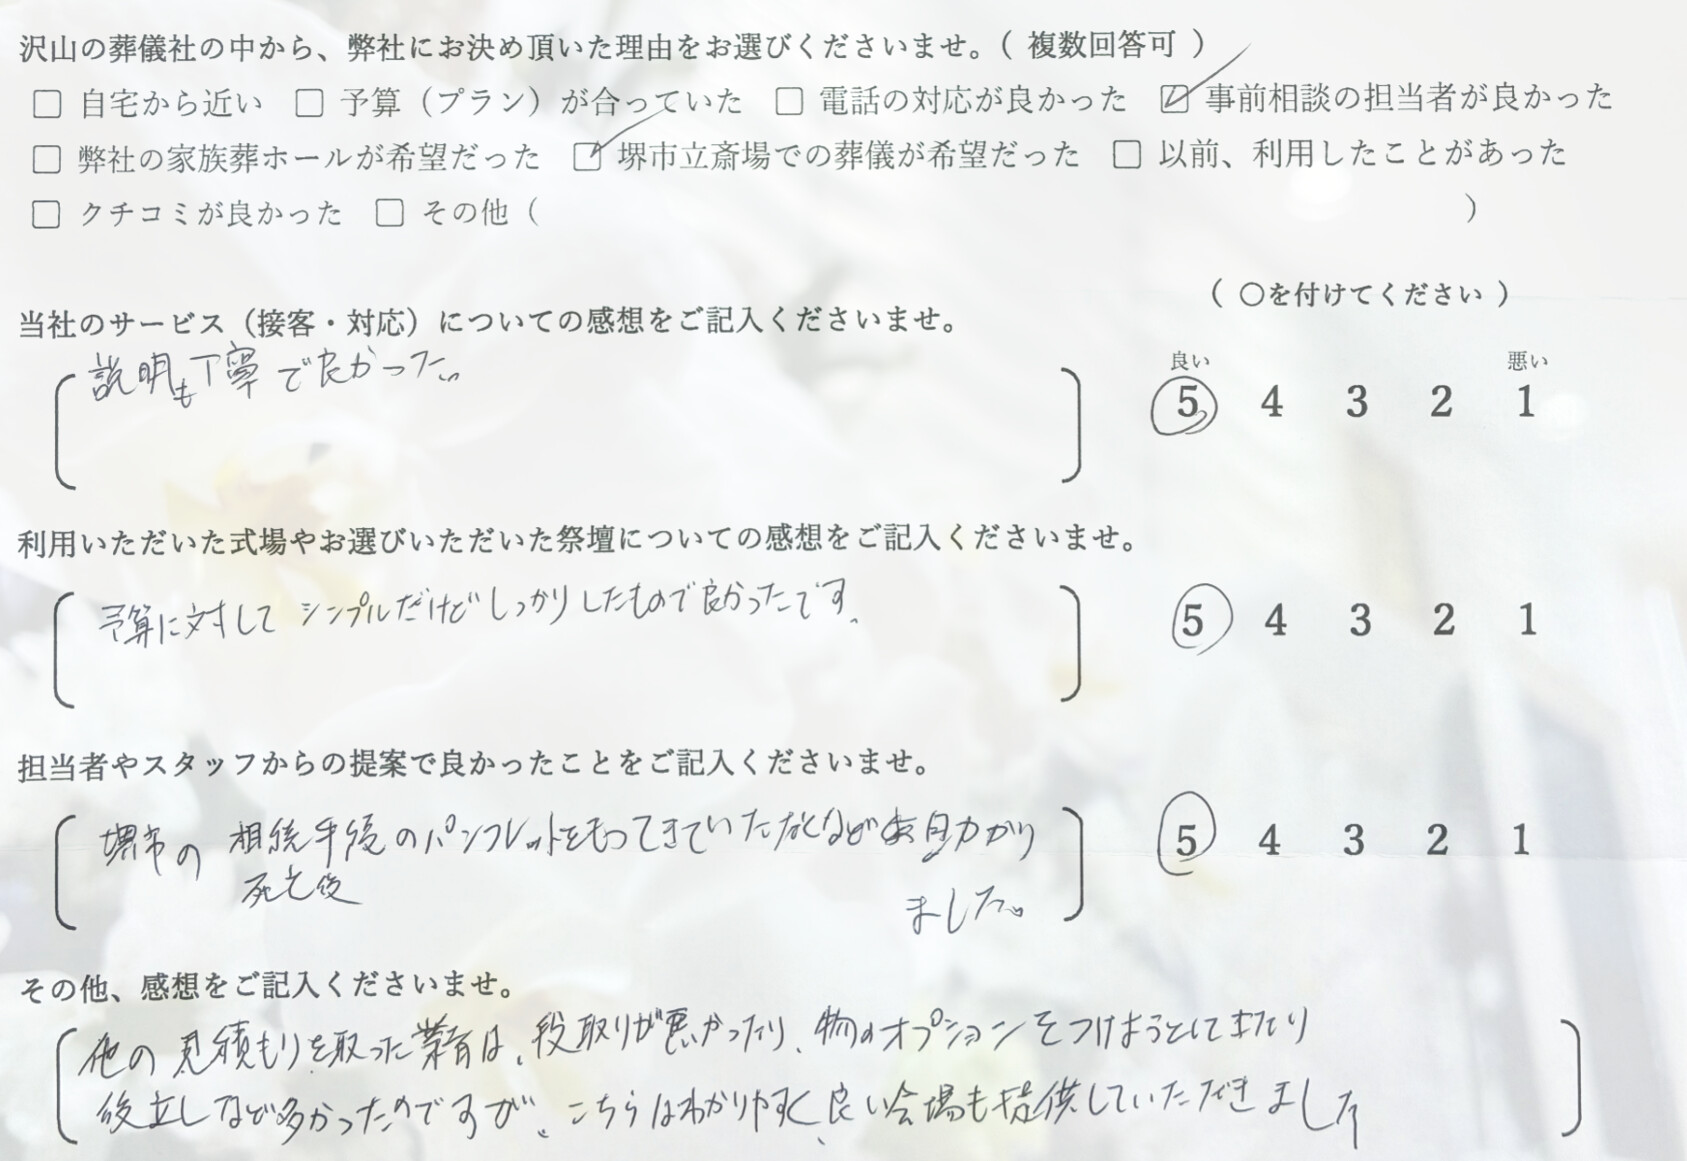 沢山の葬儀社の中から、弊社にお決め頂いた理由をお選びくださいませ。（ 複数回答可 ）
□ 自宅から近い □ 予算（プラン）が合っていた □ 電話の対応が良かった ☑ 事前相談の担当者が良かった
□ 弊社の家族葬ホールが希望だった ☑ 堺市立斎場での葬儀が希望だった □ 以前、利用したことがあった
□ クチコミが良かった □ その他（ ）
（ ○を付けてください ）
当社のサービス（接客・対応）についての感想をご記入くださいませ。
良い 悪い
説明も丁寧で良かった。
5 4 3 2 1
利用いただいた式場やお選びいただいた祭壇についての感想をご記入くださいませ。
予算に対して シンプルだけどしっかりしたもので良かったです。
5 4 3 2 1
担当者やスタッフからの提案で良かったことをご記入くださいませ。
堺市の 相続手後のパンフレットをもってきていただくなどお助かり
5 4 3 2 1
死亡後
ました。
その他、感想をご記入くださいませ。
他の見積もりを取った業者は、段取りが悪かったり、物のオプションをつけようとしてきたり
後出しなど多かったのですが、こちらはわかりやすく、良い会場も提供していただきました